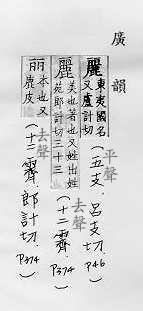 廣韻
麗 東夷國名又盧計切 平聲(五支.呂支切.P46)
麗 美也著也又姓出姓苑郎計切三十三 去聲(十二霽.P374)
丽 本也又鹿皮 去聲(十二霽.郎計切.P374)